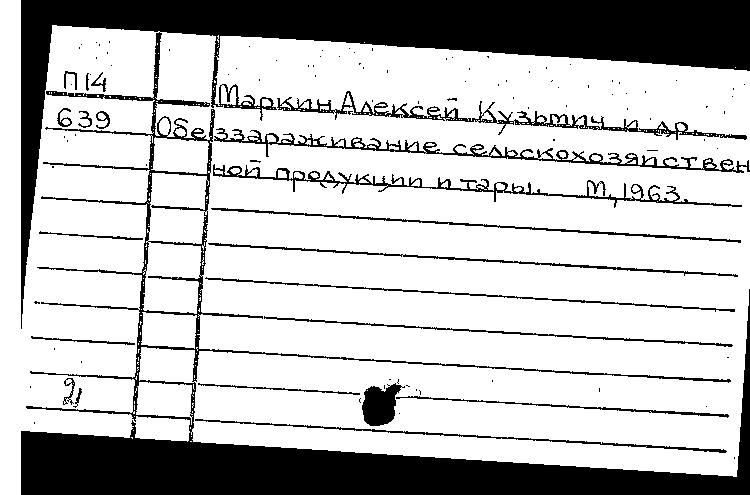 П14
Маркин, Алексей Кузьмич и др.
639
Обеззараживание сельскохозяйствен
ной продукции и тары. М., 1963.
2